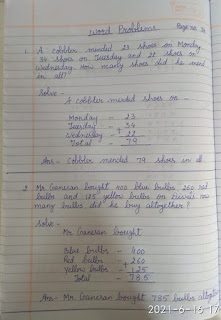 Word Problems
Page no. 34
1. A cobbler mended 23 shoes on Monday
34 shoes on Tuesday and 22 shoes on
Wednesday. How many shoes did he mend
in all?
Solve -
A cobbler mended shoes on -
Monday - 23
Tuesday - 34
Wednesday - + 22
Total - 79
Ans - Cobbler mended 79 shoes in all
2 Mr Ganesan bought 400 blue bulbs 260 red
bulbs and 125 yellow bulbs on
many bulbs did he buy altogether?
Solve -
Mr Ganesan bought
Blue bulbs - 400
Red bulbs - 260
Yellow bulbs - + 125
Total - 785
Ans - Mr Ganesan bought 785 bulbs altogether
2021-6-16 17